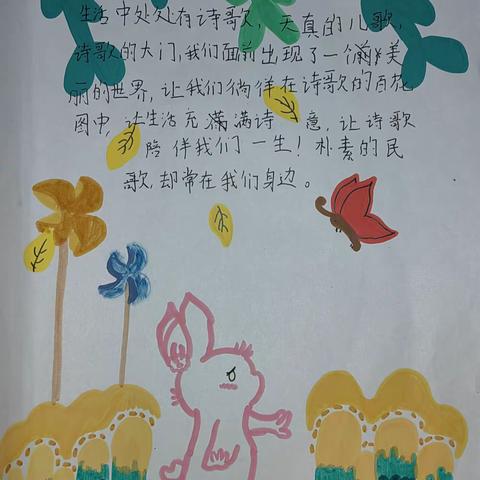 生活中处处有诗歌，天真的儿歌，
诗歌的大门，我们面前出现了一个美
丽的世界，让我们徜徉在诗歌的百花
园中，让生活充满诗意，让诗歌
陪伴我们一生！朴素的民
歌，却常在我们身边。